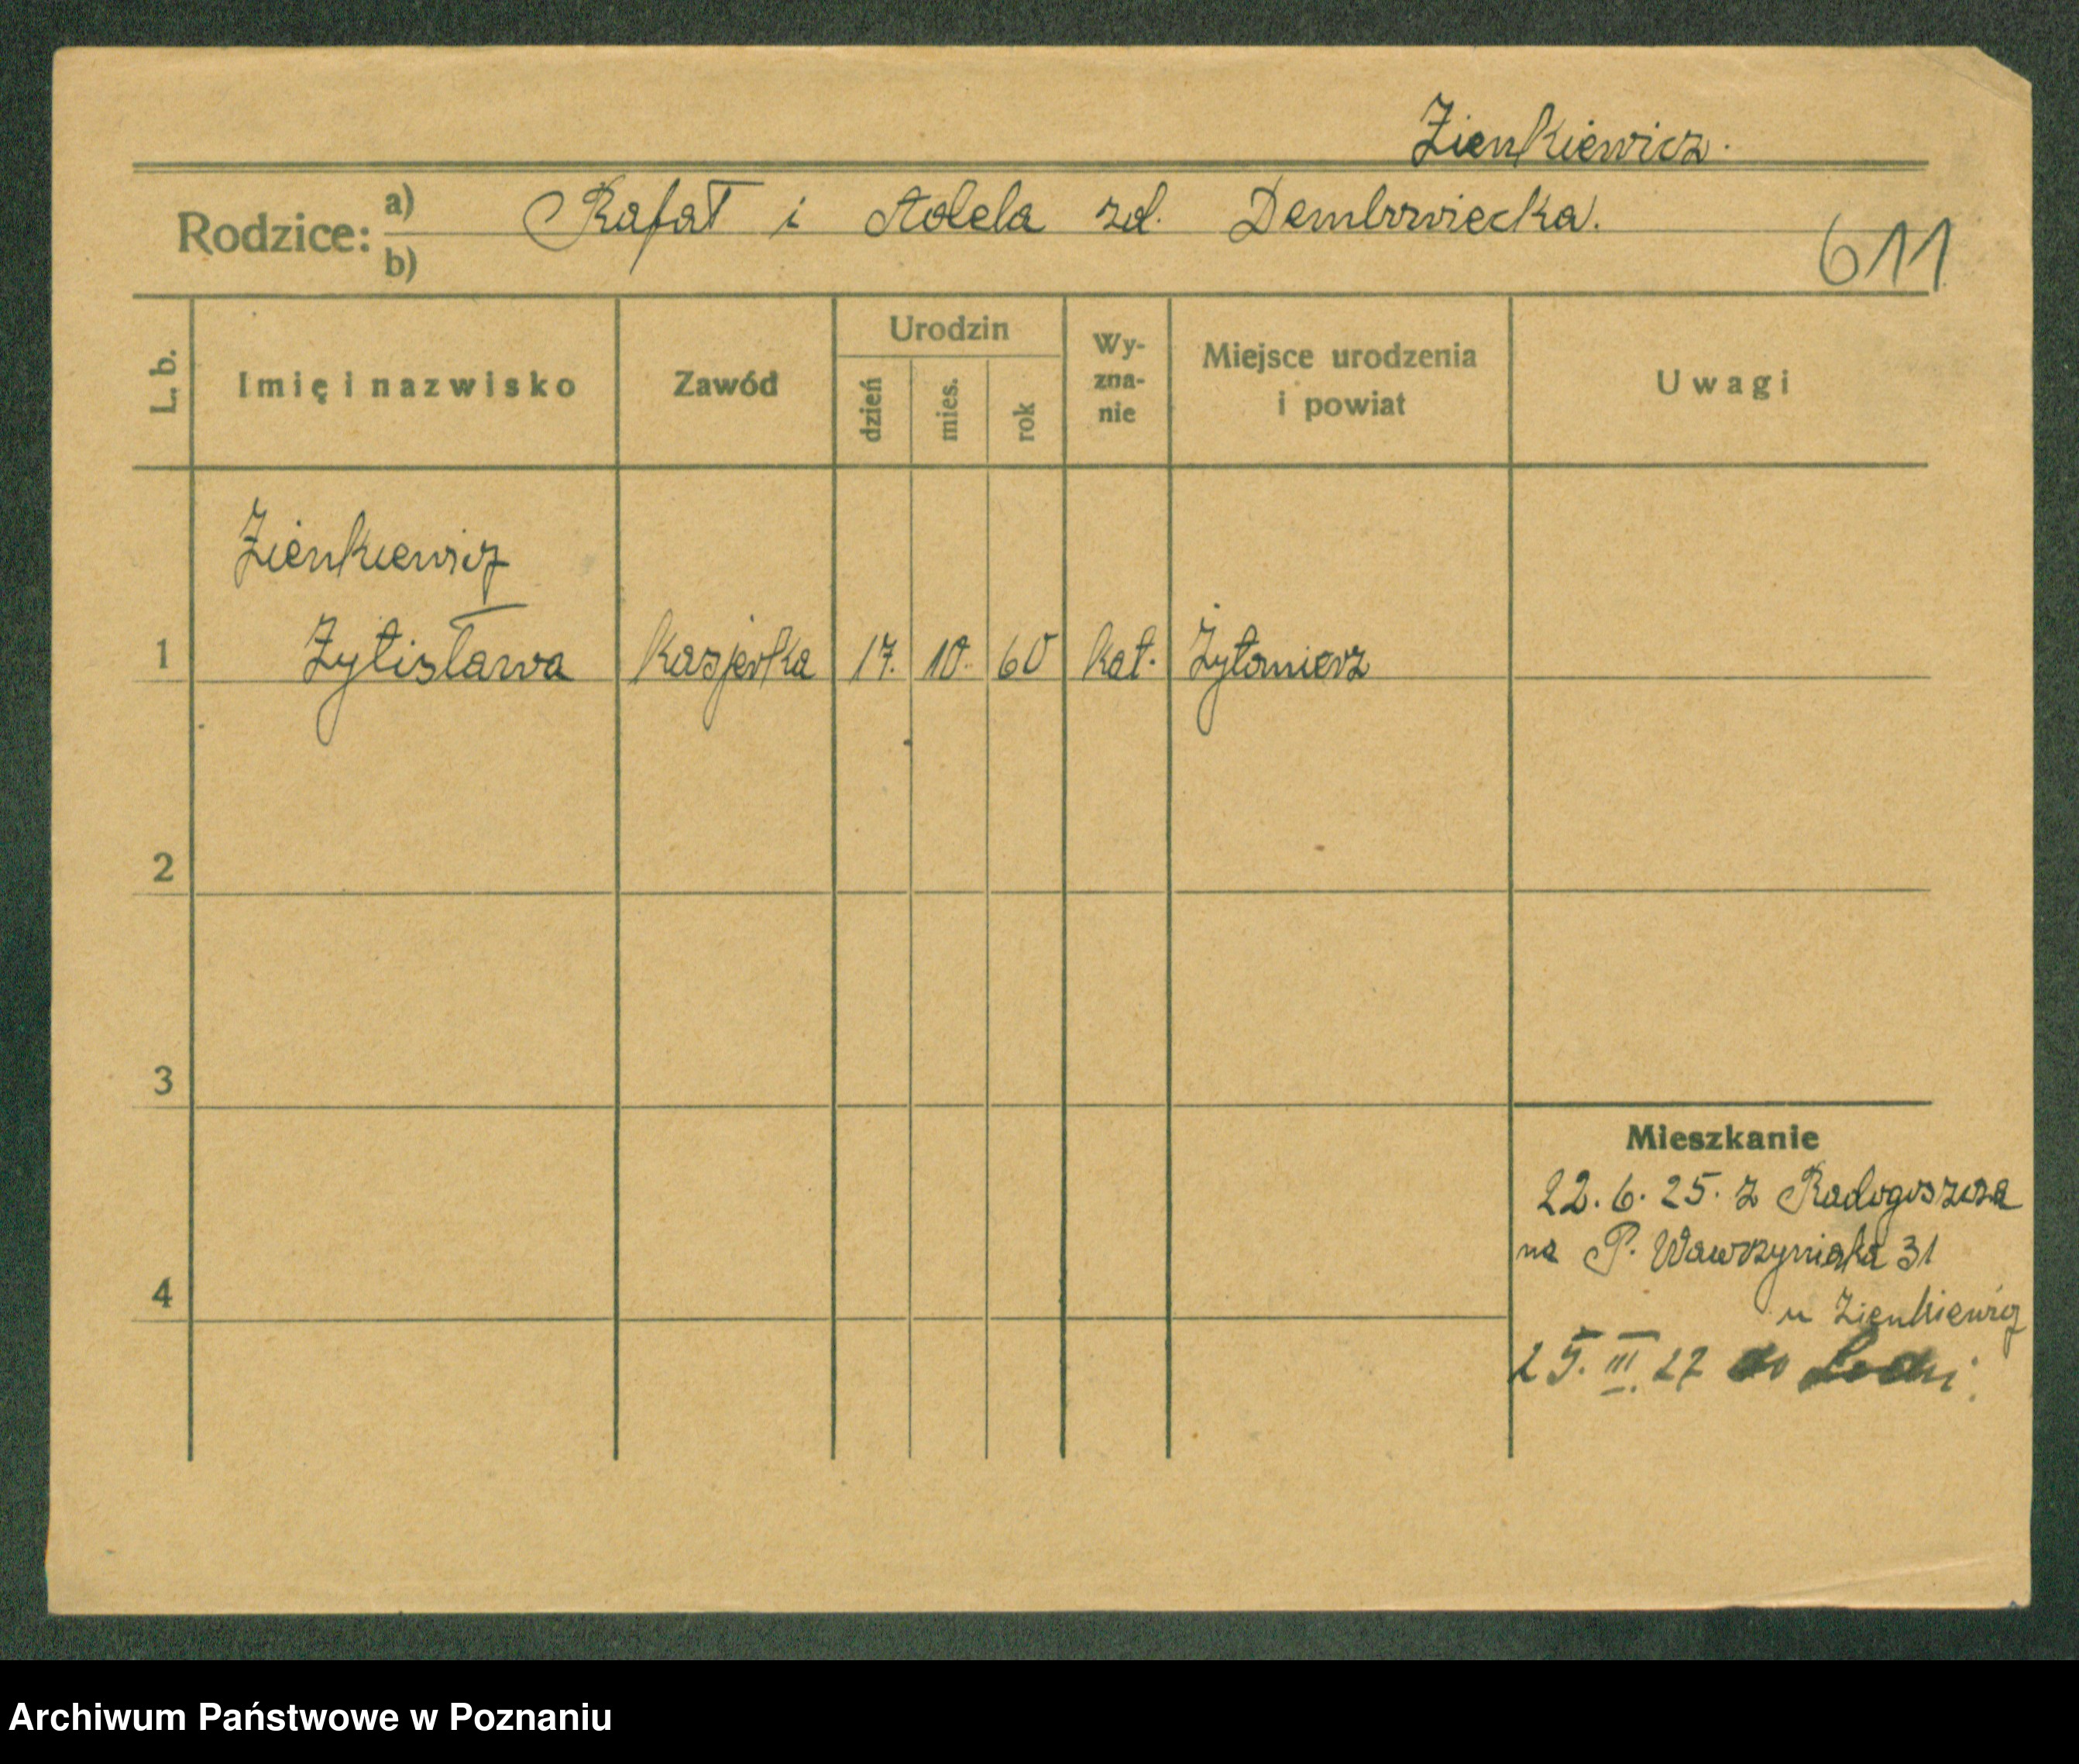 Zienkiewicz.
Rodzice: a) Rafał i Adela zd.
b)
611
L. b.
Imię i nazwisko
Zawód
Urodzin
dzień
mies.
rok
Wy-
zna-
nie
Miejsce urodzenia
i powiat
Uwagi
Zienkiewicz
1 Zytisława Kasjerka 17. 10. 60 kat. Żytomierz
2
3
4
Mieszkanie
22. 6. 25. z Radogoszcza
na P. Wawrzyniaka 31
u Zienkiewicz
25. III. 27 do Łodzi.
Archiwum Państwowe w Poznaniu